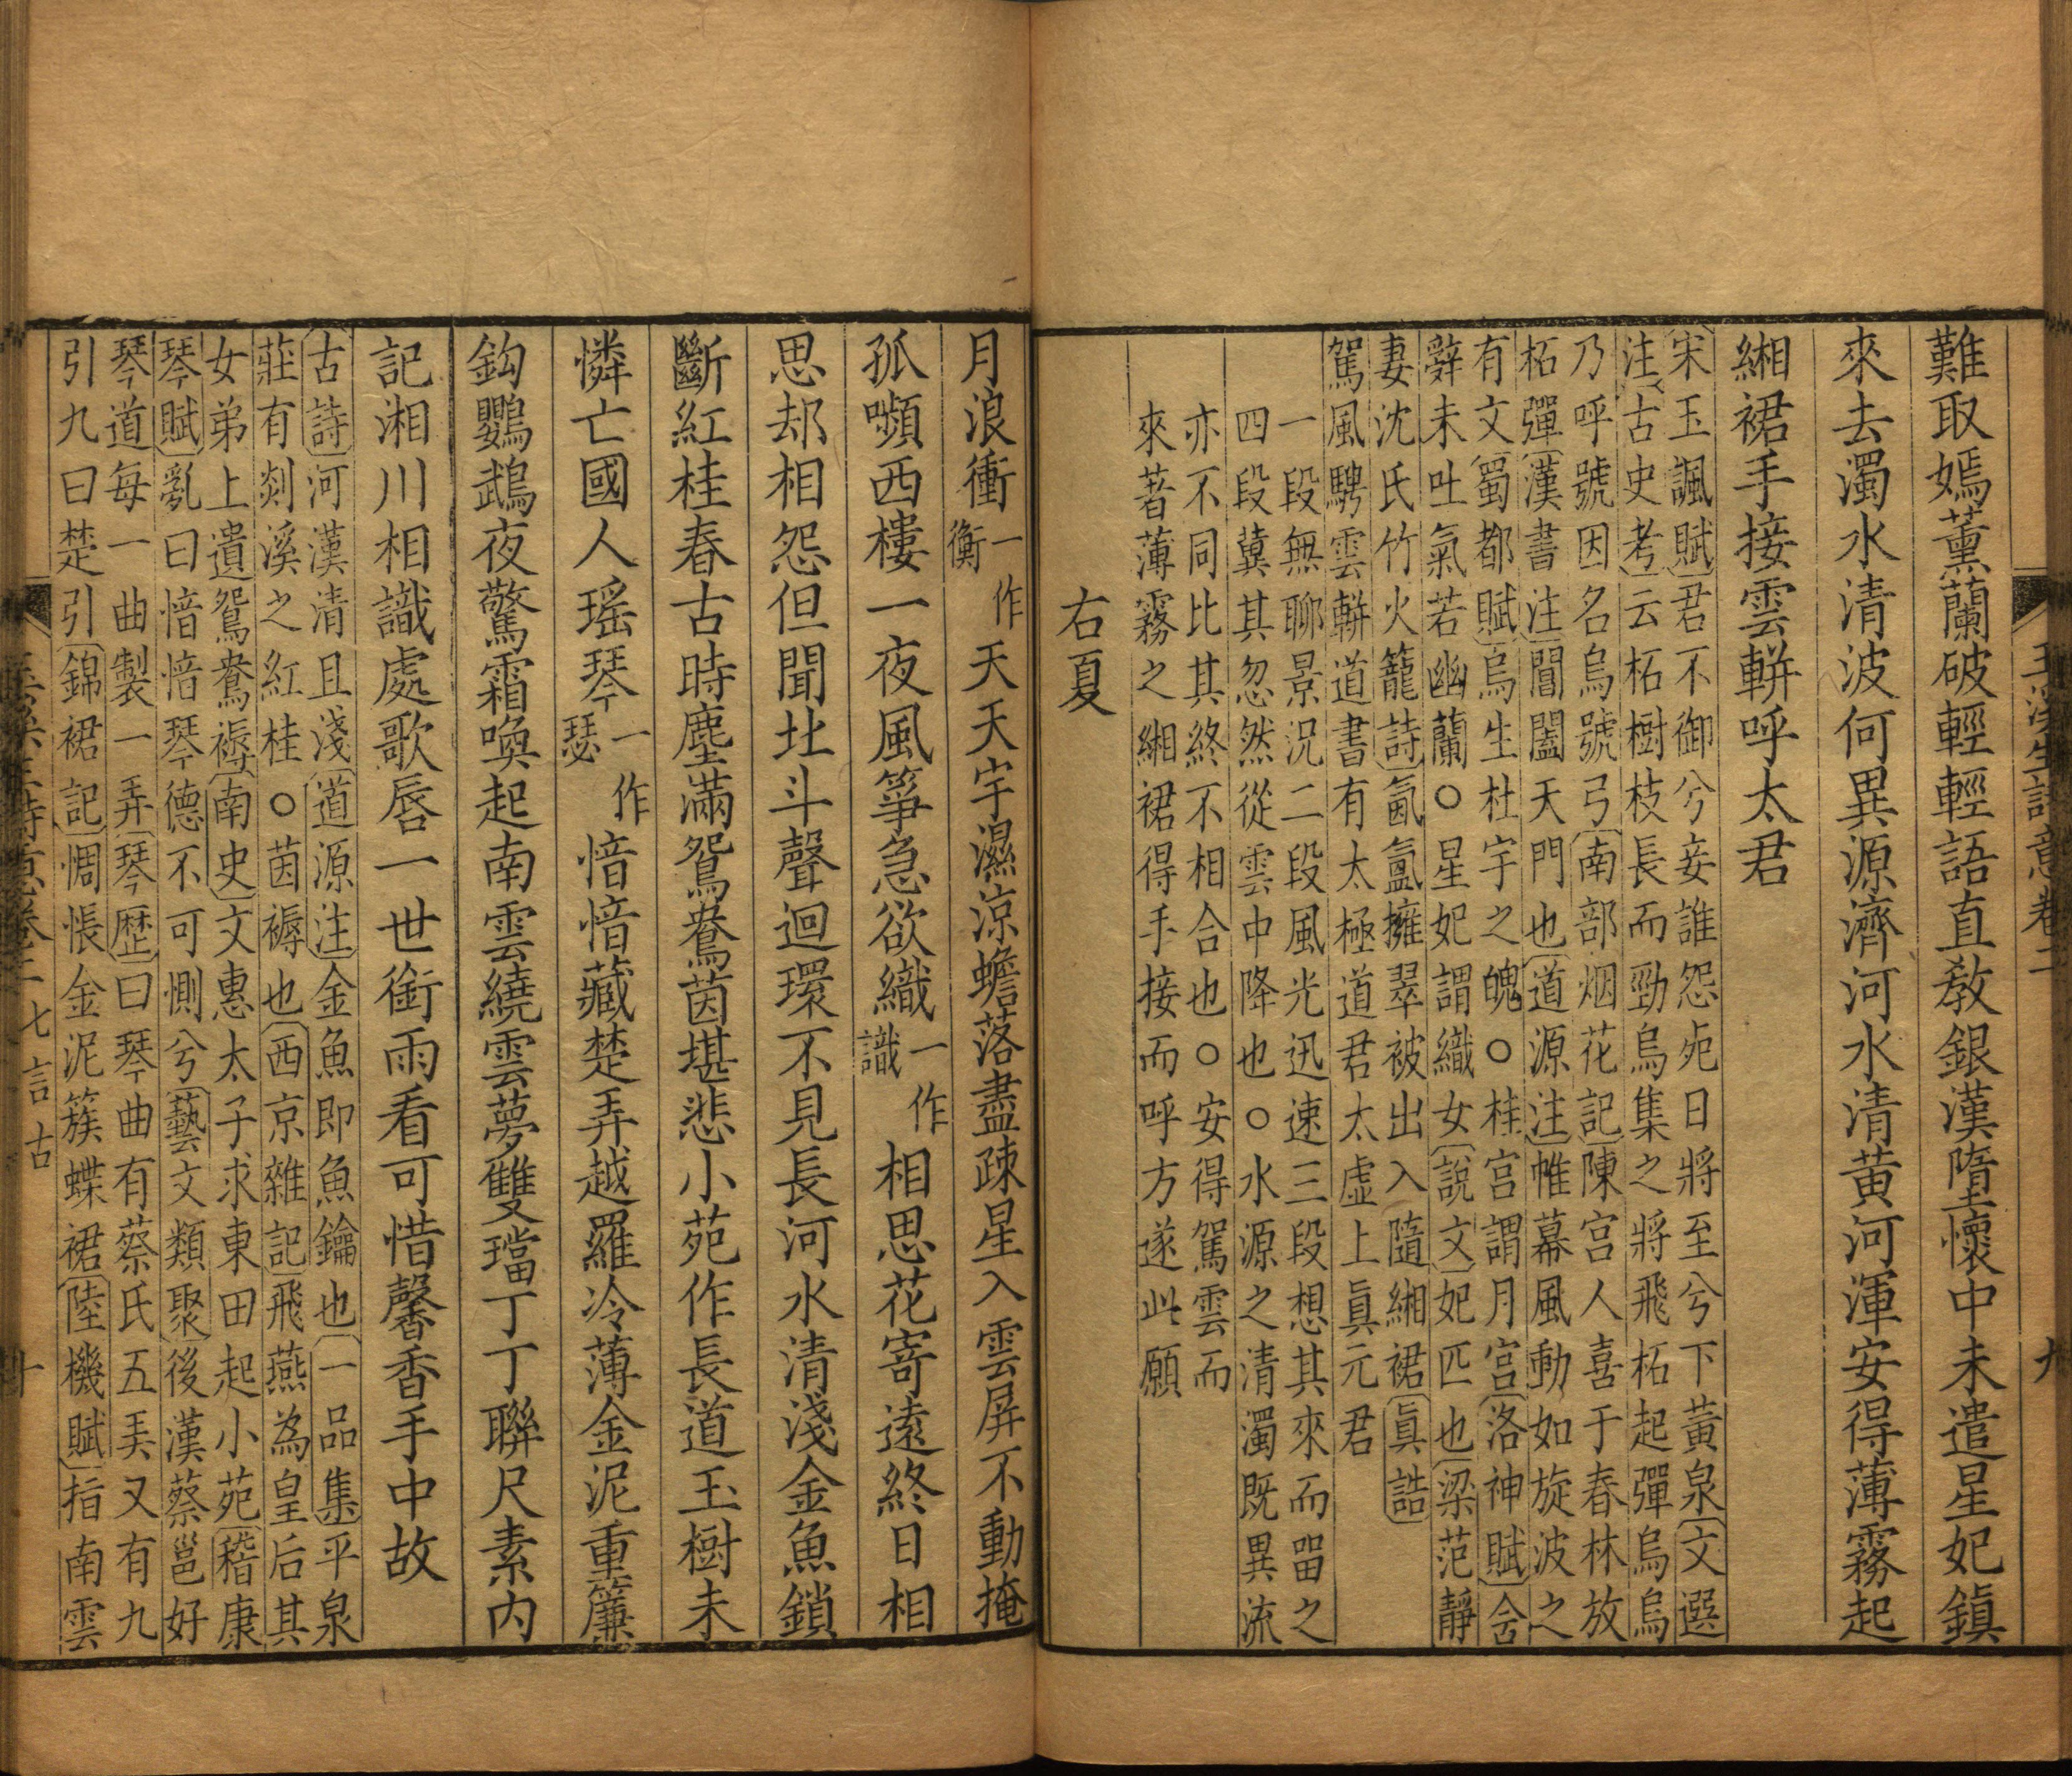 難取嫣薰蘭破輕輕語直教銀漢墮懷中未遣星妃鎮
來去濁水清波何異源濟河水清黄河渾安得薄霧起
緗裙手接雲軿呼太君
宋玉諷賦君不御兮妾誰怨宛日將至兮下黄泉文選
注古史考云柘樹枝長而勁烏集之將飛柘起彈烏烏
乃呼號因名烏號弓南部烟花記陳宫人喜于春林放
柘彈漢書注閶闔天門也道源注帷幕風動如旋波之
有文蜀都賦烏生杜宇之魄○桂宫謂月宫洛神賦含
辭未吐氣若幽蘭○星妃謂織女說文妃匹也梁范靜
妻沈氏竹火籠詩氤氳擁翠被出入隨緗裙眞誥
駕風騁雲軿道書有太極道君太虛上眞元君
一段無聊景況二段風光迅速三段想其來而留之
四段冀其忽然從雲中降也○水源之清濁既異流
亦不同比其終不相合也○安得駕雲而
來著薄霧之緗裙得手接而呼方遂此願
右夏
玉溪生詩意卷二 九
月浪衝一作衡天天宇濕涼蟾落盡疎星入雲屏不動掩
孤嚬西樓一夜風箏急欲織一作識相思花寄遠終日相
思却相怨但聞北斗聲迴環不見長河水清淺金魚鎖
斷紅桂春古時塵滿鴛鴦茵堪悲小苑作長道玉樹未
憐亡國人瑶琴一作瑟愔愔藏楚弄越羅冷薄金泥重簾
鈎鸚鵡夜驚霜喚起南雲繞雲夢雙璫丁丁聯尺素内
記湘川相識處歌唇一世銜雨看可惜馨香手中故
古詩河漢清且淺道源注金魚即魚鑰也一品集平泉
莊有剡溪之紅桂○茵褥也西京雜記飛燕為皇后其
女弟上遺鴛鴦褥南史文惠太子求東田起小苑稽康
琴賦亂曰愔愔琴德不可惻兮藝文類聚後漢蔡邕好
琴道每一曲製一弄琴歴曰琴曲有蔡氏五弄又有九
引九曰楚引錦裙記惆悵金泥簇蝶裙陸機賦指南雲
七言古 十